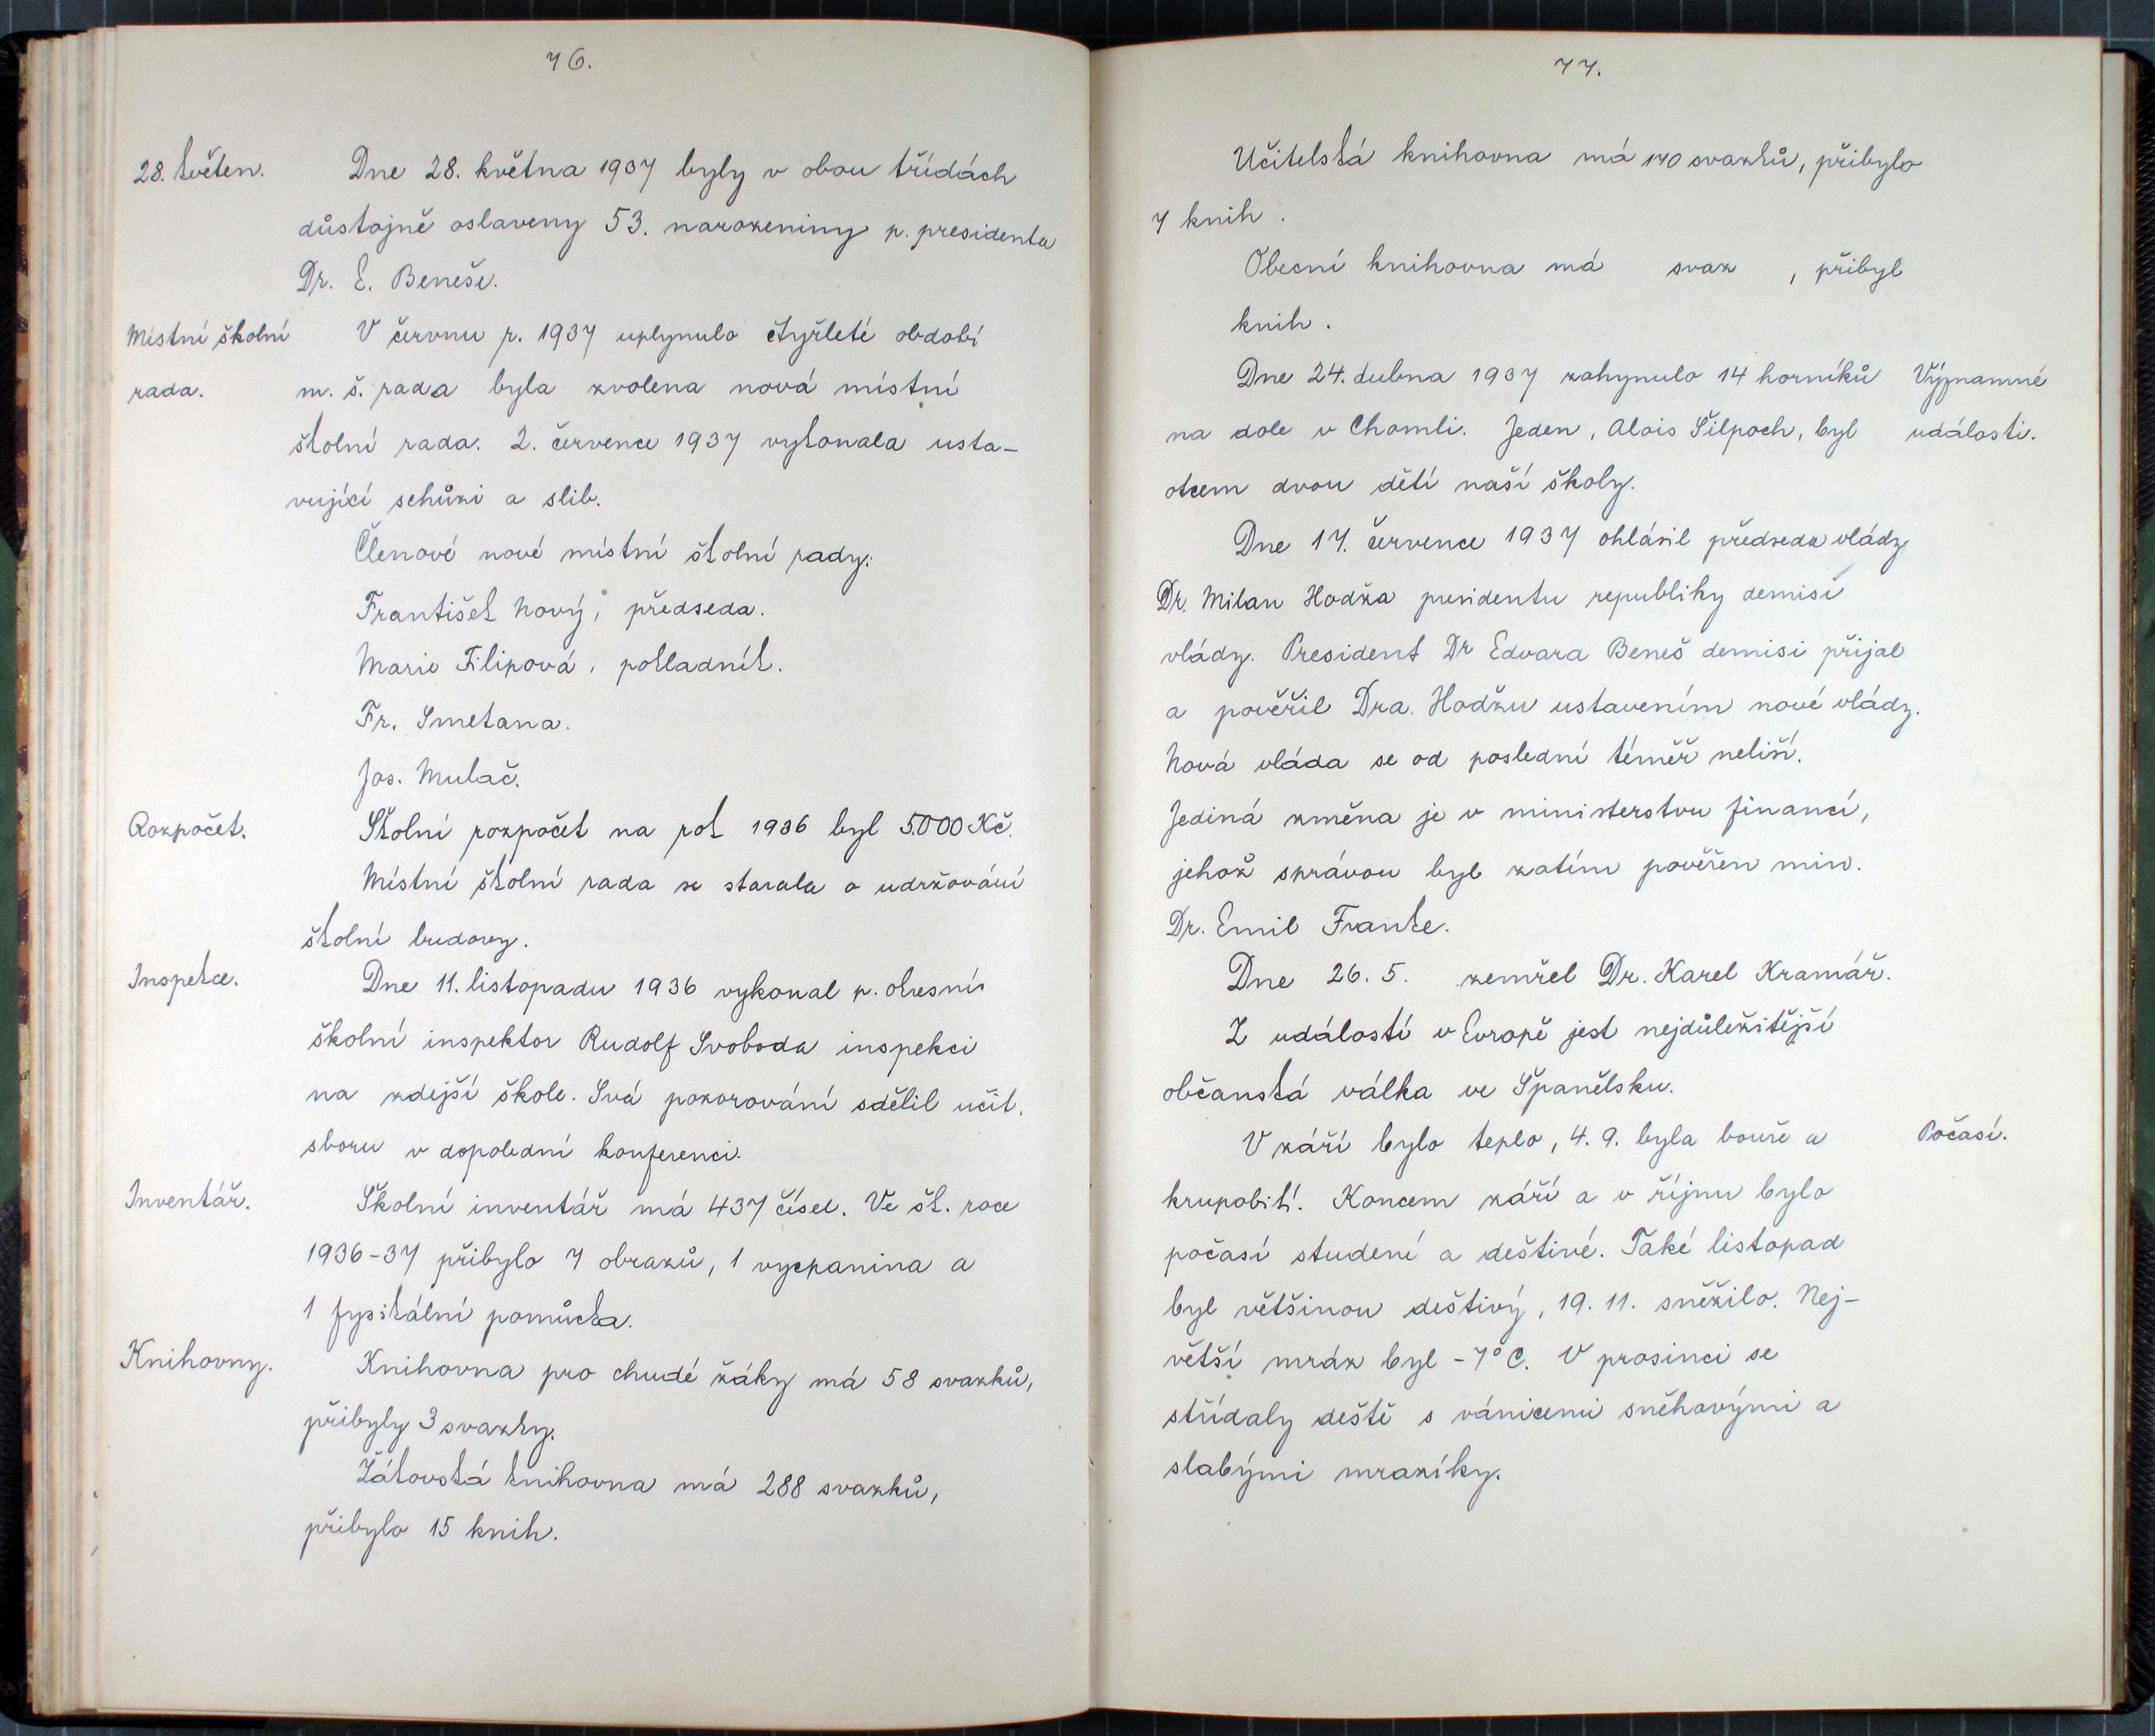 76.
28. květen.
Dne 28. května 1937 byly v obou třídách
důstojně oslaveny 53. narozeniny p. presidenta
Dr. E. Beneše.
Místní školní
rada.
V červnu r. 1937 uplynulo čtyřleté období
m. š. rada byla zvolena nová místní
školní rada. 2. července 1937 vykonala usta-
vující schůzi a slib.
Členové nové místní školní rady:
František Nový, předseda.
Marie Filipová, pokladník.
Fr. Smetana.
Jos. Mulač.
Rozpočet.
Školní rozpočet na rok 1936 byl 5.000 Kč.
Místní školní rada se starala o udržování
školní budovy.
Inspekce.
Dne 11. listopadu 1936 vykonal p. okresní
školní inspektor Rudolf Svoboda inspekci
na zdejší škole. Svá pozorování sdělil učit.
sboru v dopolední konferenci.
Inventář.
Školní inventář má 437 čísel. Ve šk. roce
1936-37 přibylo 7 obrazů, 1 vycpanina a
1 fysikální pomůcka.
Knihovny.
Knihovna pro chudé žáky má 58 svazků,
přibyly 3 svazky.
Žákovská knihovna má 288 svazků,
přibylo 15 knih.
77.
Učitelská knihovna má 170 svazků, přibylo
7 knih.
Obecní knihovna má svaz , přibyl
knih.
Dne 24. dubna 1937 zahynulo 14 horníků
Významné
na dole v Chomli. Jeden, Alois Šilpoch, byl
události.
otcem dvou dětí naší školy.
Dne 17. července 1937 ohlásil předseda vlády
Dr. Milan Hodža presidentu republiky demisi
vlády. President Dr Edvard Beneš demisi přijal
a pověřil Dra. Hodžu ustavením nové vlády.
Nová vláda se od poslední téměř neliší.
Jediná změna je v ministerstvu financí,
jehož správou byl zatím pověřen min.
Dr. Emil Franke.
Dne 26. 5. zemřel Dr. Karel Kramář.
Z událostí v Evropě jest nejdůležitější
občanská válka ve Španělsku.
V září bylo teplo, 4. 9. byla bouře a
Počasí.
krupobití. Koncem září a v říjnu bylo
počasí studené a deštivé. Také listopad
byl většinou deštivý, 19. 11. sněžilo. Nej-
větší mráz byl -7°C. V prosinci se
střídaly deště s vánicemi sněhovými a
slabými mrazíky.